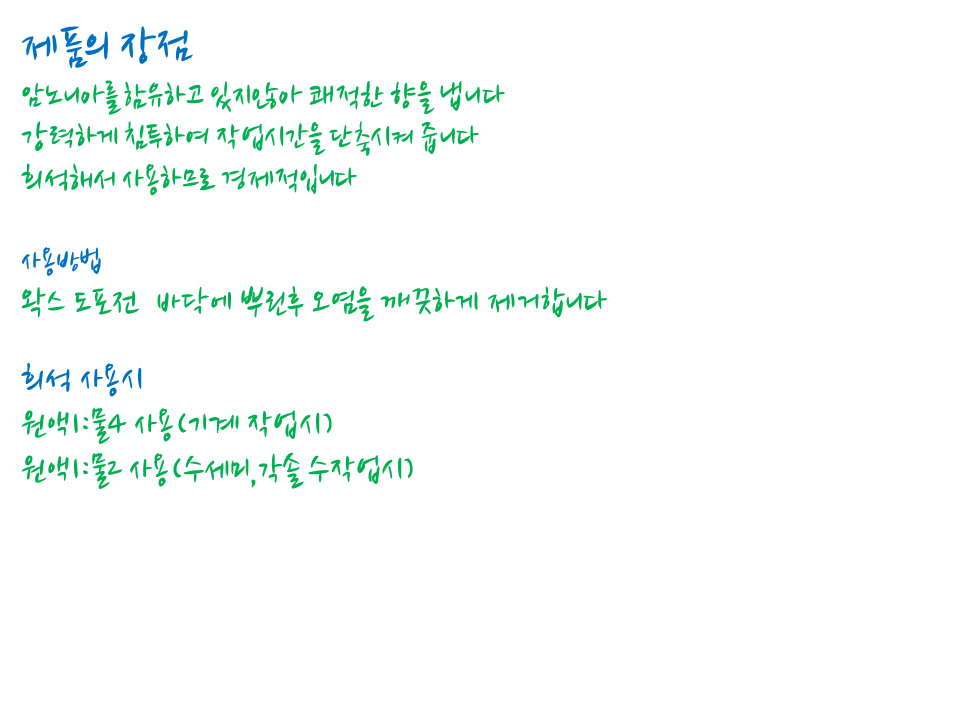 제품의 장점
암노니아를 함유하고 있지않아 쾌적한 향을 냅니다
강력하게 침투하여 작업시간을 단축시켜 줍니다
희석해서 사용하므로 경제적입니다
사용방법
왁스 도포전 바닥에 뿌린후 오염을 깨끗하게 제거합니다
희석 사용시
원액1:물4 사용(기계 작업시)
원액1:물2 사용(수세미,각솔 수작업시)